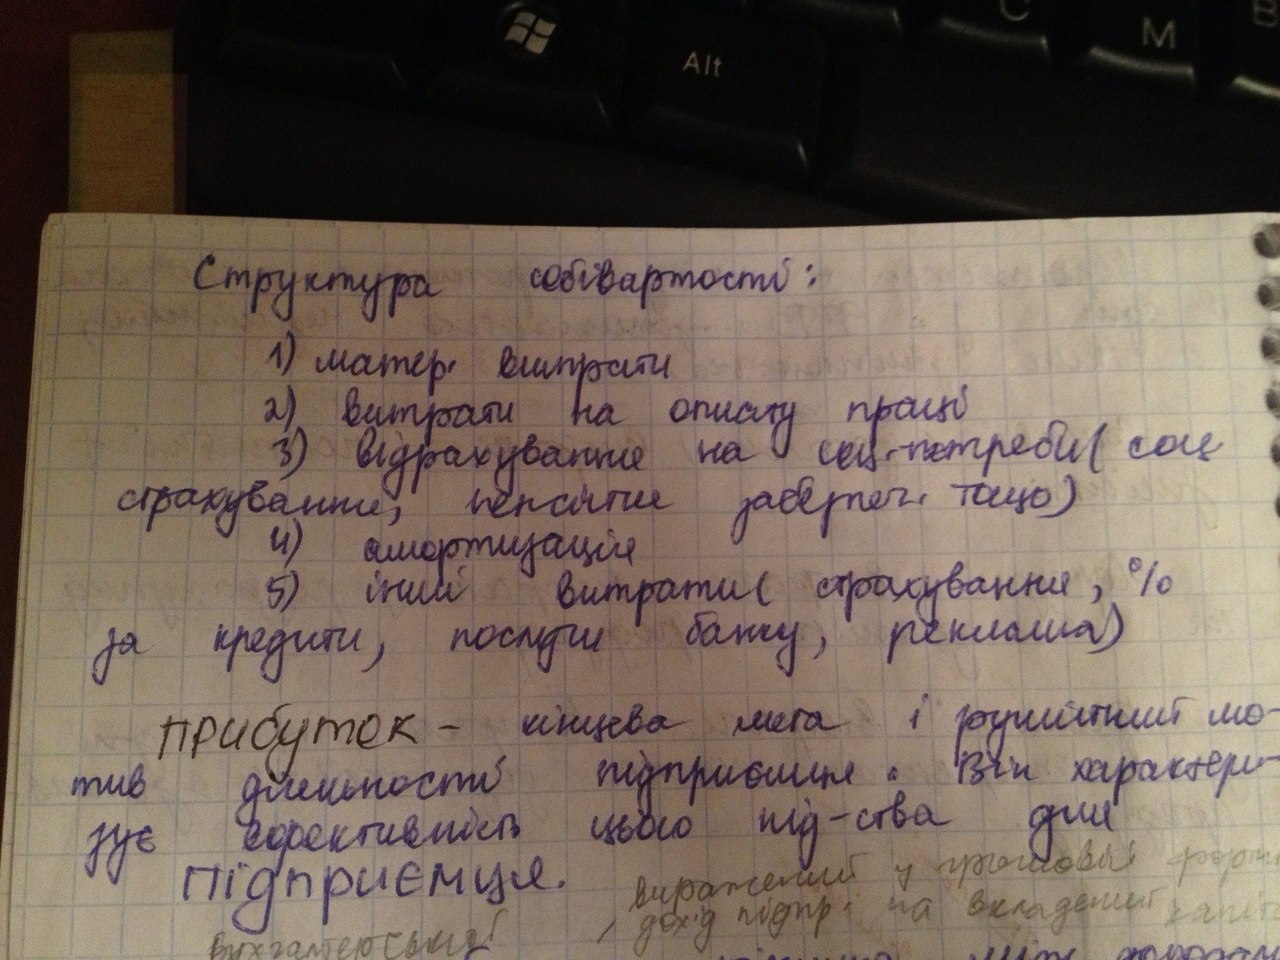 Alt
C
M
Структура собівартості:
1) матер. витрати
2) витрати на оплату праці
3) відрахування на соц. потреби (соц
страхування, пенсійне забезпеч. тощо)
4) амортизація
5) інші витрати (страхування, %
за кредити, послуги банку, реклама)
Прибуток - кінцева мета і рушійний мо-
тив діяльності підприємця. Він характери-
зує ефективність цього під-ства для
підприємця.
виражений у грошовій формі
дохід підпр. на вкладений капіт
бухгалтерський
між доходом